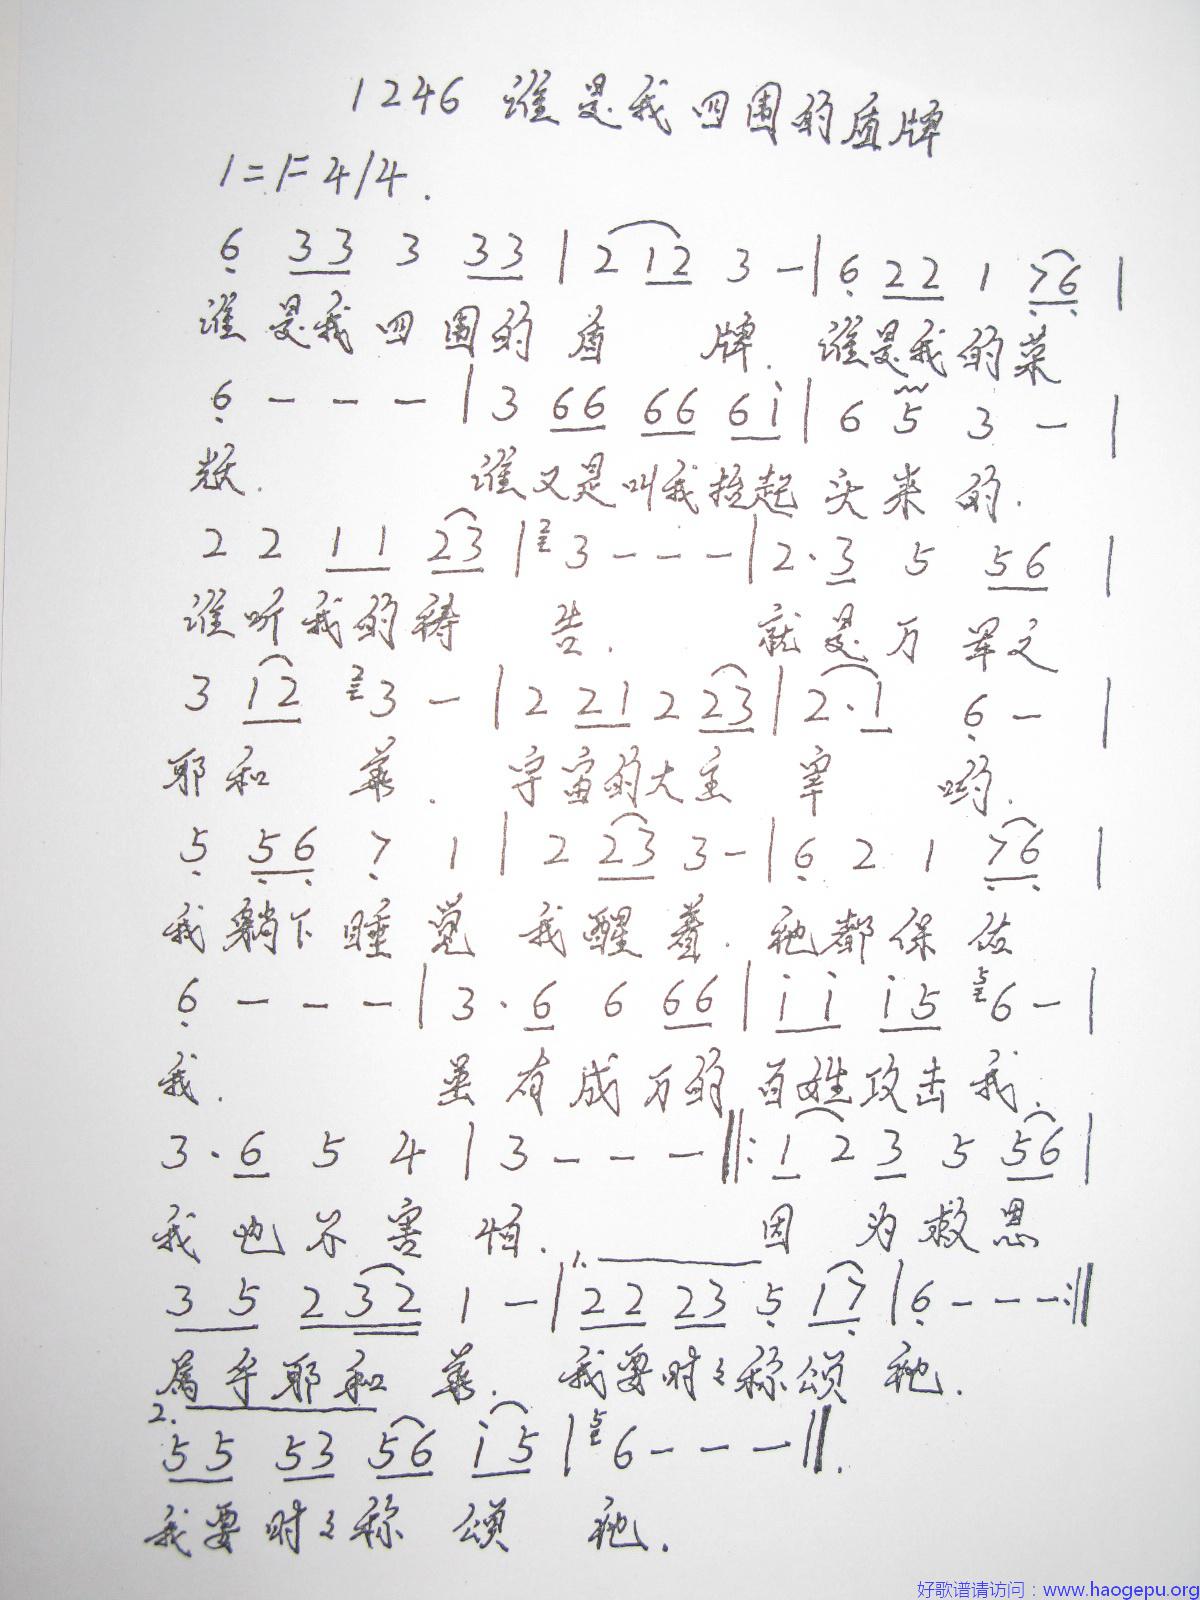 1246 谁是我四围的盾牌
1=F 4/4.
6 33 3 33 | 2 12 3 - | 6 22 1 76 |
谁是我四围的盾 牌. 谁是我的荣
6 - - - | 3 66 66 6i | 6 5 3 - |
耀. 谁又是叫我抬起头来的.
2 2 11 23 | 2 3 - - - | 2·3 5 56 |
谁听我的祷 告. 就是万军之
3 12 2 3 - | 2 21 2 23 | 2·1 6 - |
耶和 华. 宇宙的大主 宰 哟.
5 56 7 1 | 2 23 3 - | 6 2 1 76 |
我躺下睡觉 我醒着. 祂都保佑
6 - - - | 3·6 6 66 | i i i5 5 6 - |
我. 虽有成万的百姓攻击我.
3·6 5 4 | 3 - - - ‖: 1 2 3 5 56 |
我也不害怕. 因 为救恩
1.
3 5 2 32 1 - | 22 23 5 17 | 6 - - - :‖
属乎耶和 华. 我要时々称颂 祂.
2.
55 53 56 i5 | 5 6 - - - ‖.
我要时々称 颂 祂.
好歌谱请访问：www.haogepu.org